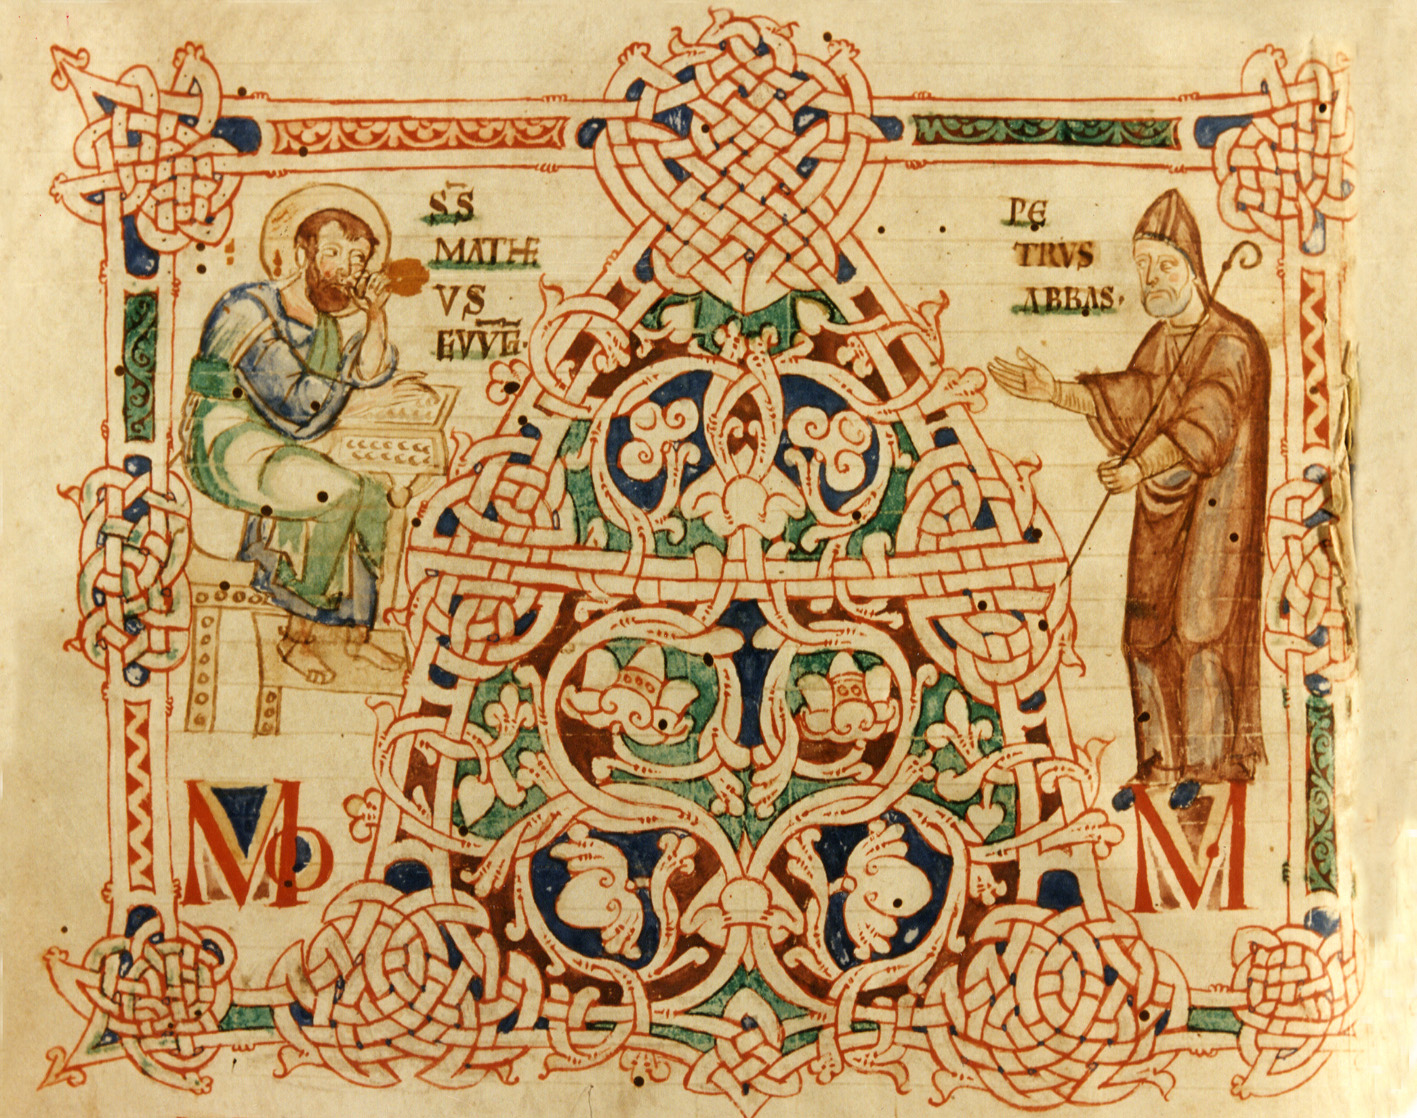 S̄S̄
MATHE
VS
PE
TRVS
ABBAS·
A
MO
M